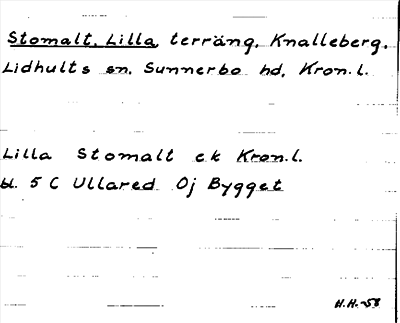 Stomalt, Lilla, terräng, Knalleberg,
Lidhults sn, Sunnerbo hd, Kron.l.
Lilla Stomalt ek Kron.l.
bl. 5 C Ullared Oj Bygget
H.H.-58